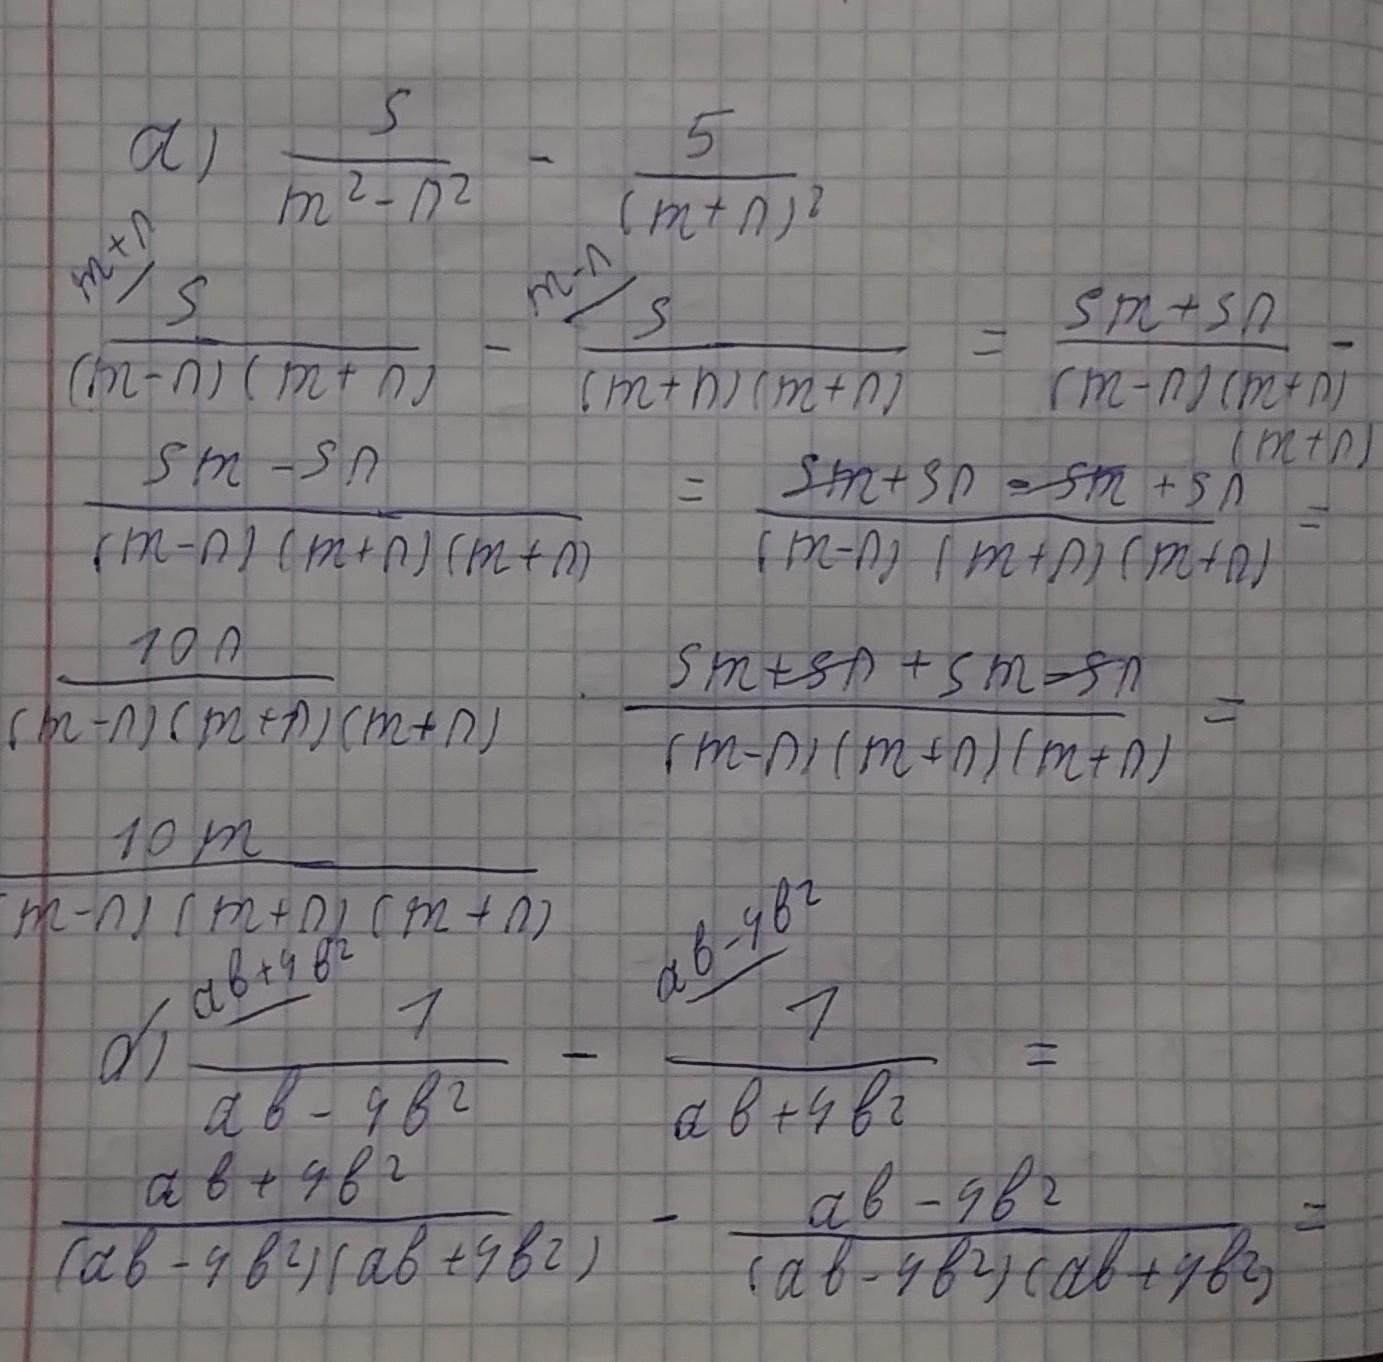 а) 5/(m²-n²) - 5/(m+n)²
m+n/ 5/((m-n)(m+n)) - m-n/ 5/((m+n)(m+n)) = (5m+5n)/((m-n)(m+n)(m+n)) -
(5m-5n)/((m-n)(m+n)(m+n)) = (5m+5n-5m+5n)/((m-n)(m+n)(m+n)) =
10n/((m-n)(m+n)(m+n)) (5m+5n+5m-5n)/((m-n)(m+n)(m+n)) =
10m/((m-n)(m+n)(m+n))
ab+4b²/ 1/(ab-4b²) - ab-4b²/ 1/(ab+4b²) =
(ab+4b²)/((ab-4b²)(ab+4b²)) - (ab-4b²)/((ab-4b²)(ab+4b²)) =